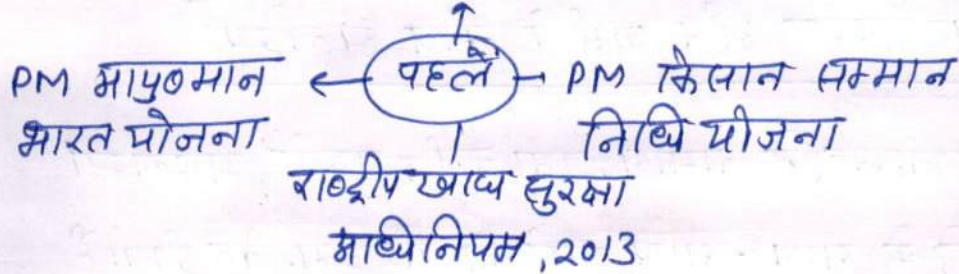 पहलें
PM आयुष्मान
भारत योजना
PM किसान सम्मान
निधि योजना
राष्ट्रीय खाद्य सुरक्षा
अधिनियम, 2013